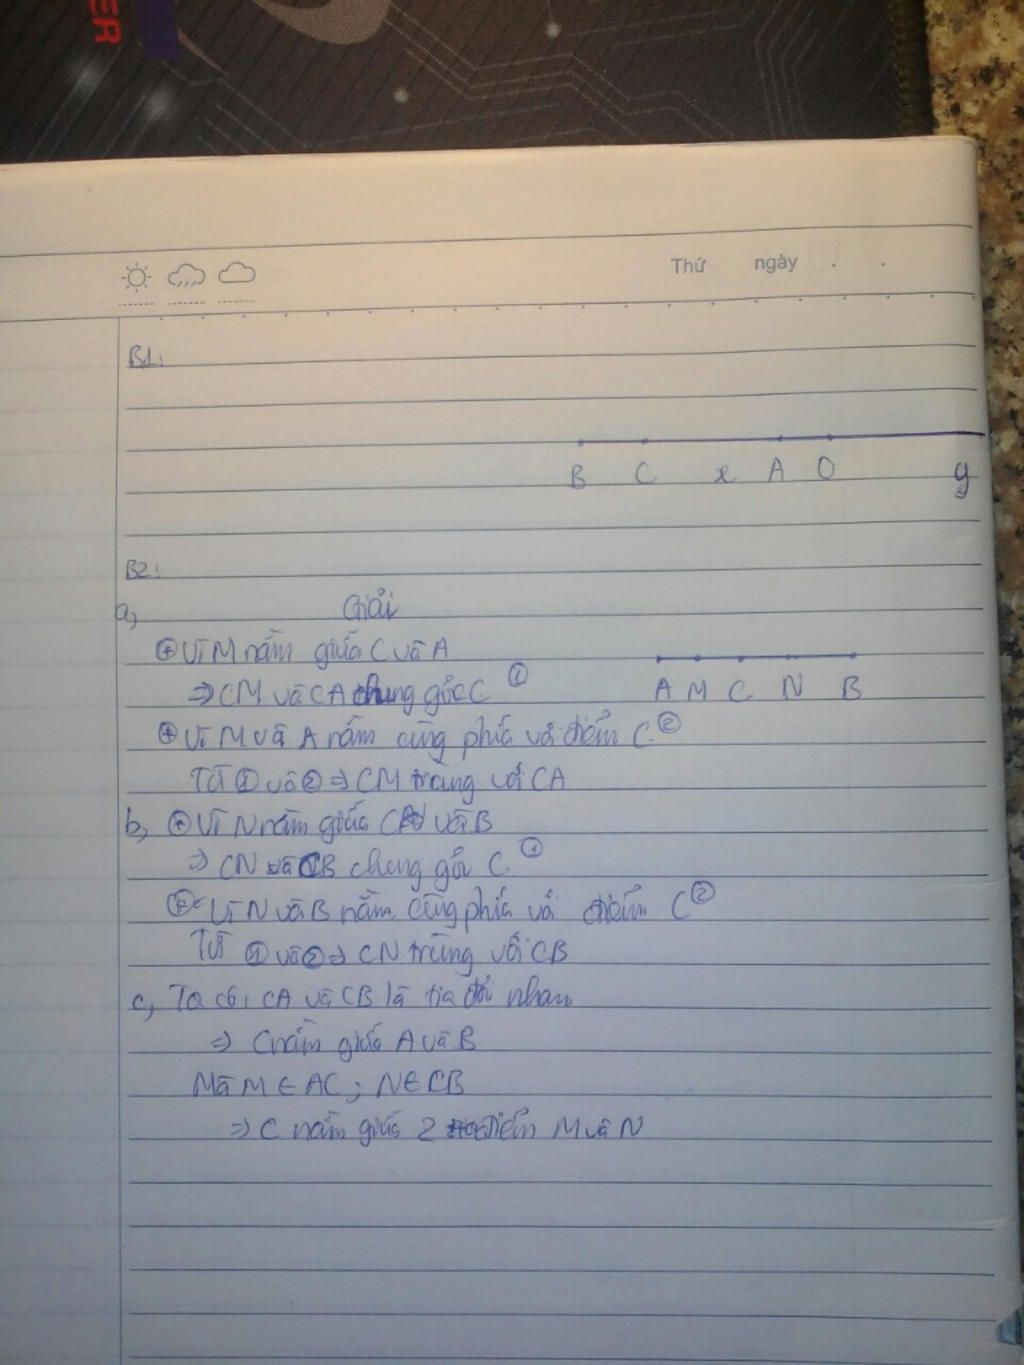 ER
Thứ ngày . .
B1:
B C x A O y
B2:
a, Giải
⊕ Vì M nằm giữa C và A
⇒ CM và CA chung gốc C ①
A M C N B
⊕ Vì M và A nằm cùng phía với điểm C. ②
Từ ① và ② ⇒ CM trùng với CA
b, ⊕ Vì N nằm giữa C và B
⇒ CN và CB chung gốc C. ①
⊕ Vì N và B nằm cùng phía với điểm C ②
Từ ① và ② ⇒ CN trùng với CB
c, Ta có: CA và CB là tia đối nhau
⇒ C nằm giữa A và B
Mà M ∈ AC ; N ∈ CB
⇒ C nằm giữa 2 điểm M và N